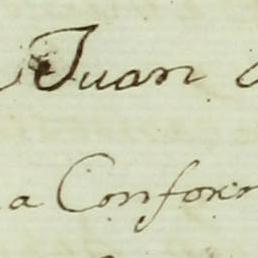 Juan
a Confor